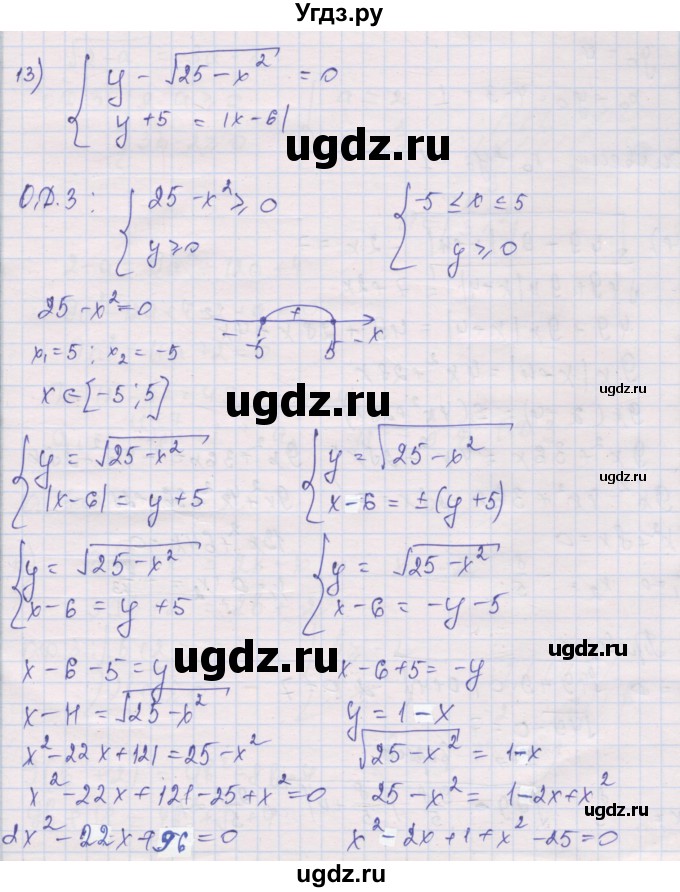 Угдз.ру
13) { y - √(25 - x²) = 0
y + 5 = |x - 6|
ugdz.ru
О.Д.З : { 25 - x² ⩾ 0 { -5 ≤ x ≤ 5
y ⩾ 0 y ⩾ 0
25 - x² = 0
x₁ = 5 ; x₂ = -5
- + -
-5 5 x
x ∈ [-5 ; 5]
ugdz.ru
ugdz.ru
{ y = √(25 - x²) { y = √(25 - x²)
|x - 6| = y + 5 x - 6 = ±(y + 5)
ugdz.ru
{ y = √(25 - x²) { y = √(25 - x²)
x - 6 = y + 5 x - 6 = -y - 5
ugdz.ru
x - 6 - 5 = y x - 6 + 5 = -y
x - 11 = √(25 - x²) y = 1 - x
x² - 22x + 121 = 25 - x² √(25 - x²) = 1 - x
x² - 22x + 121 - 25 + x² = 0 25 - x² = 1 - 2x + x²
ugdz.ru
2x² - 22x + 96 = 0 x² - 2x + 1 + x² - 25 = 0